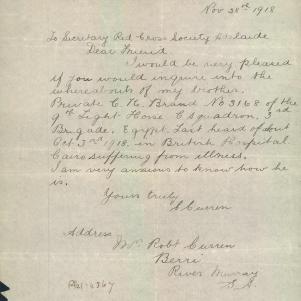 Nov 28th 1918
To Secretary Red Cross Society Adelaide
Dear Friend
I would be very pleased
if you would inquire into the
whereabouts of my brother.
Private C. H. Brand No 3168 of the
9th Light Horse C Squadron, 3rd
Brigade, Egypt. Last heard of about
Oct 3rd 1918, in British Hospital
Cairo suffering from illness.
I am very anxious to know how he
is.
Yours truly
Curren
Address
Robt Curren
Berri
River Murray
S.A.